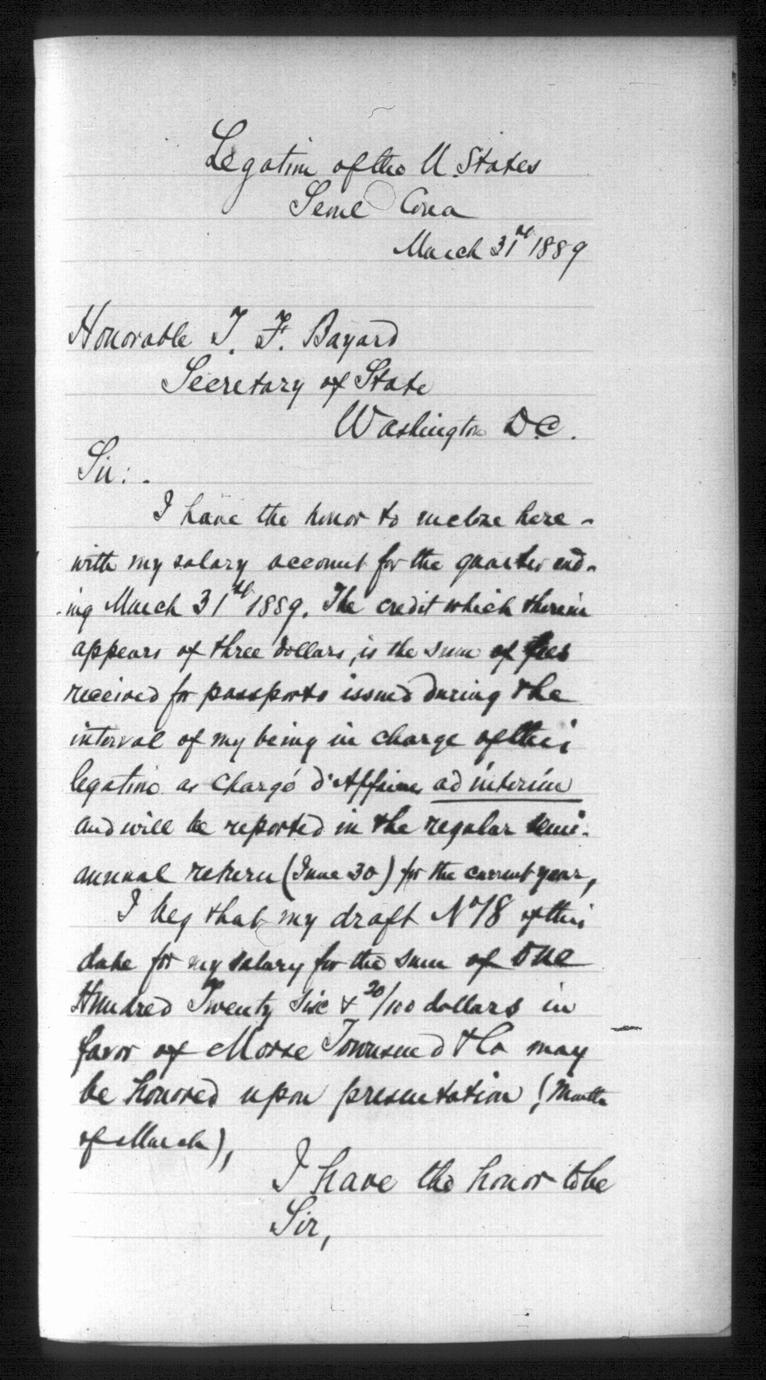 Legation of the U. States
Seoul Corea
March 31st 1889
Honorable T. F. Bayard
Secretary of State
Washington D.C.
Sir:.
I have the honor to inclose here-
with my salary account for the quarter end-
ing March 31st 1889. The credit which therein
appears of three dollars, is the sum of fees
received for passports issued during the
interval of my being in charge of this
legation as Chargé d'Affaires ad interim
and will be reported in the regular semi-
annual return (June 30) for the current year,
I beg that my draft No 18 of this
date for my salary for the sum of One
Hundred Twenty Six & 20/100 dollars in
favor of Morse Townsend & Co may
be honored upon presentation (Month
of March),
I have the honor to be
Sir,